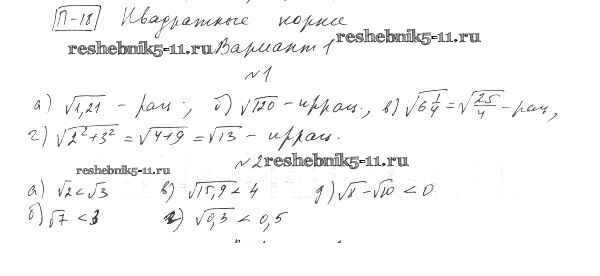 П-18 Квадратные корни
reshebnik5-11.ru Вариант 1 reshebnik5-11.ru
№1
а) √1,21 - рац.; б) √120 - иррац., в) √6 1/4 = √25/4 - рац,
г) √2²+3² = √4+9 = √13 - иррац.
№2 reshebnik5-11.ru
reshebnik5-11.ru
а) √2 < √3 в) √15,9 < 4 д) √8 - √10 < 0
б) √7 < 3 г) √0,3 < 0,5